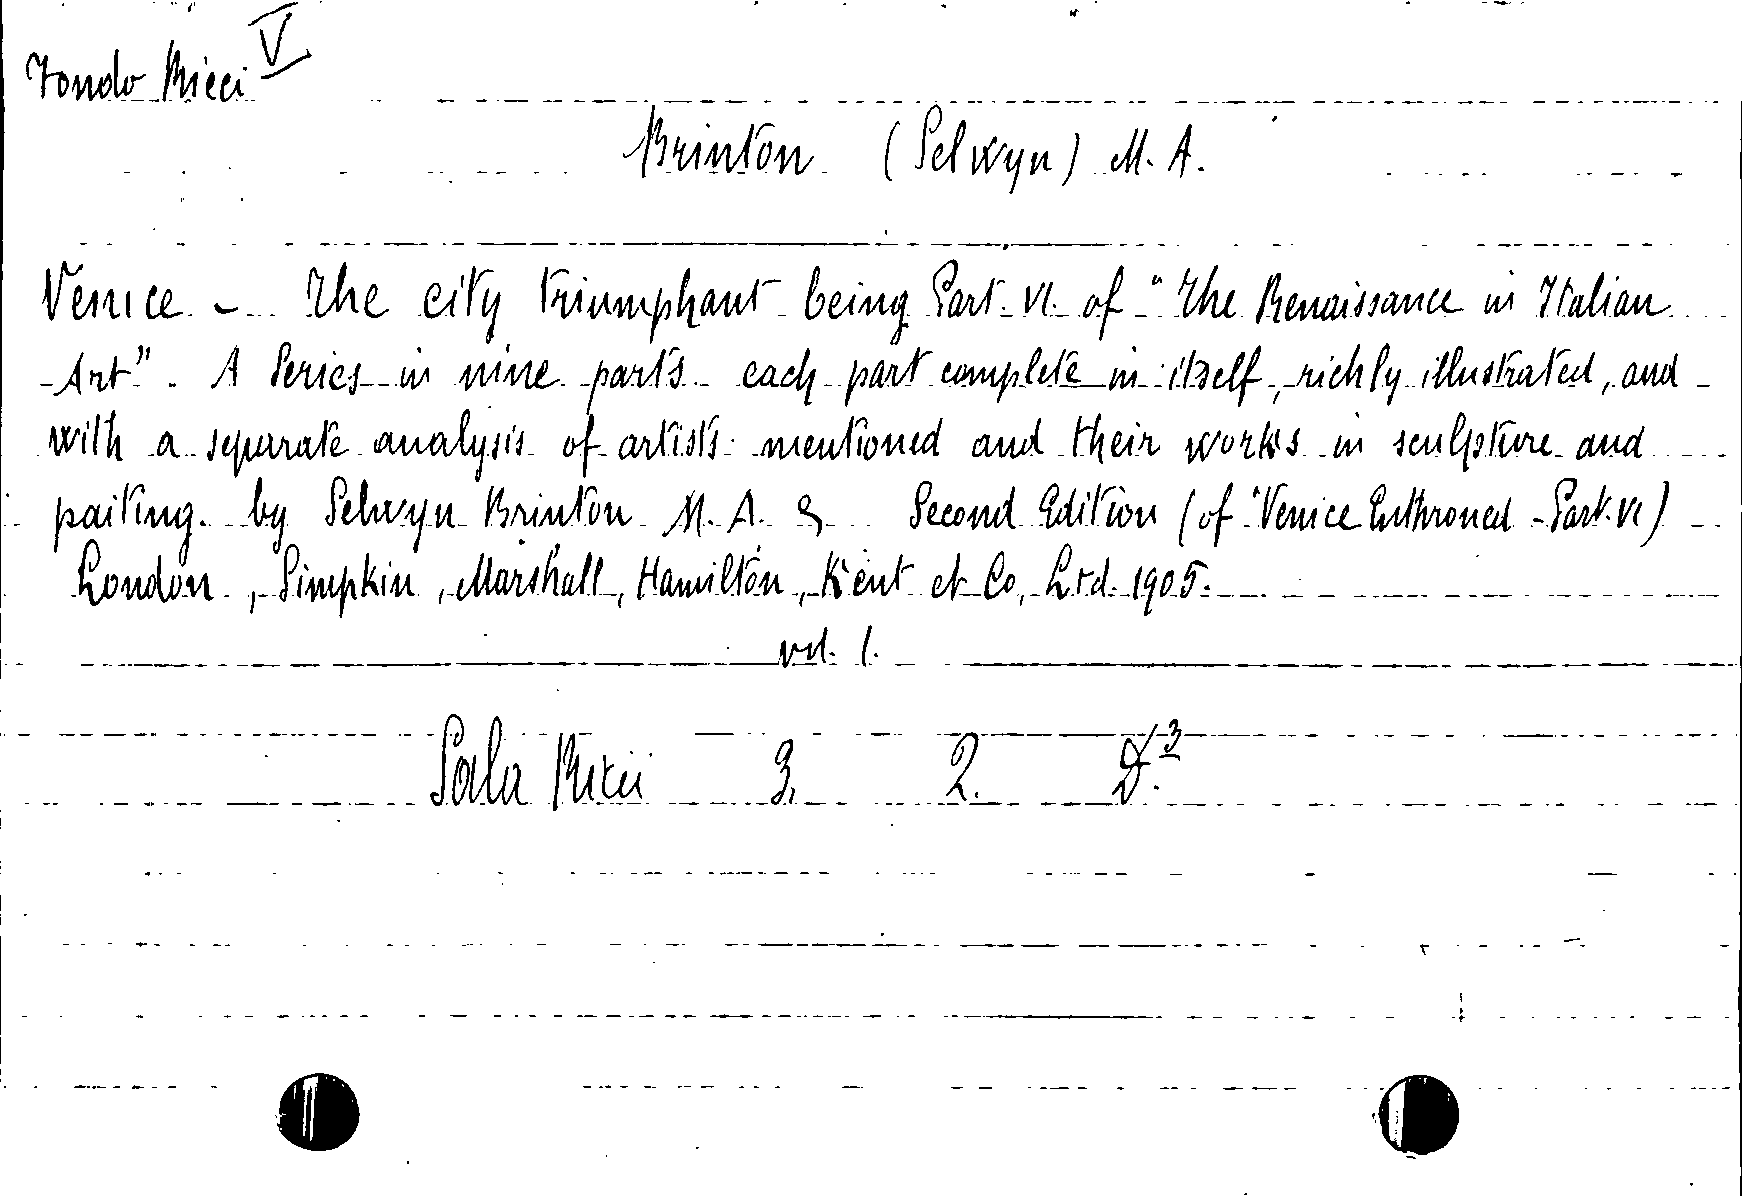 Fondo Ricci V
Brinton (Selwyn) M. A.
Venice - The city triumphant being Part. VI. of "The Renaissance in Italian
Art". A Series in nine parts each part complete in itself, richly illustrated, and
with a separate analysis of artists mentioned and their works in sculpture and
paiting. by Selwyn Brinton M. A. Second Edition (of "Venice Enthroned - Part. VI)
London, Simpkin, Marshall, Hamilton, Kent et Co, Ltd. 1905.
vol. 1.
Sala Ricci 3. 2. D.³